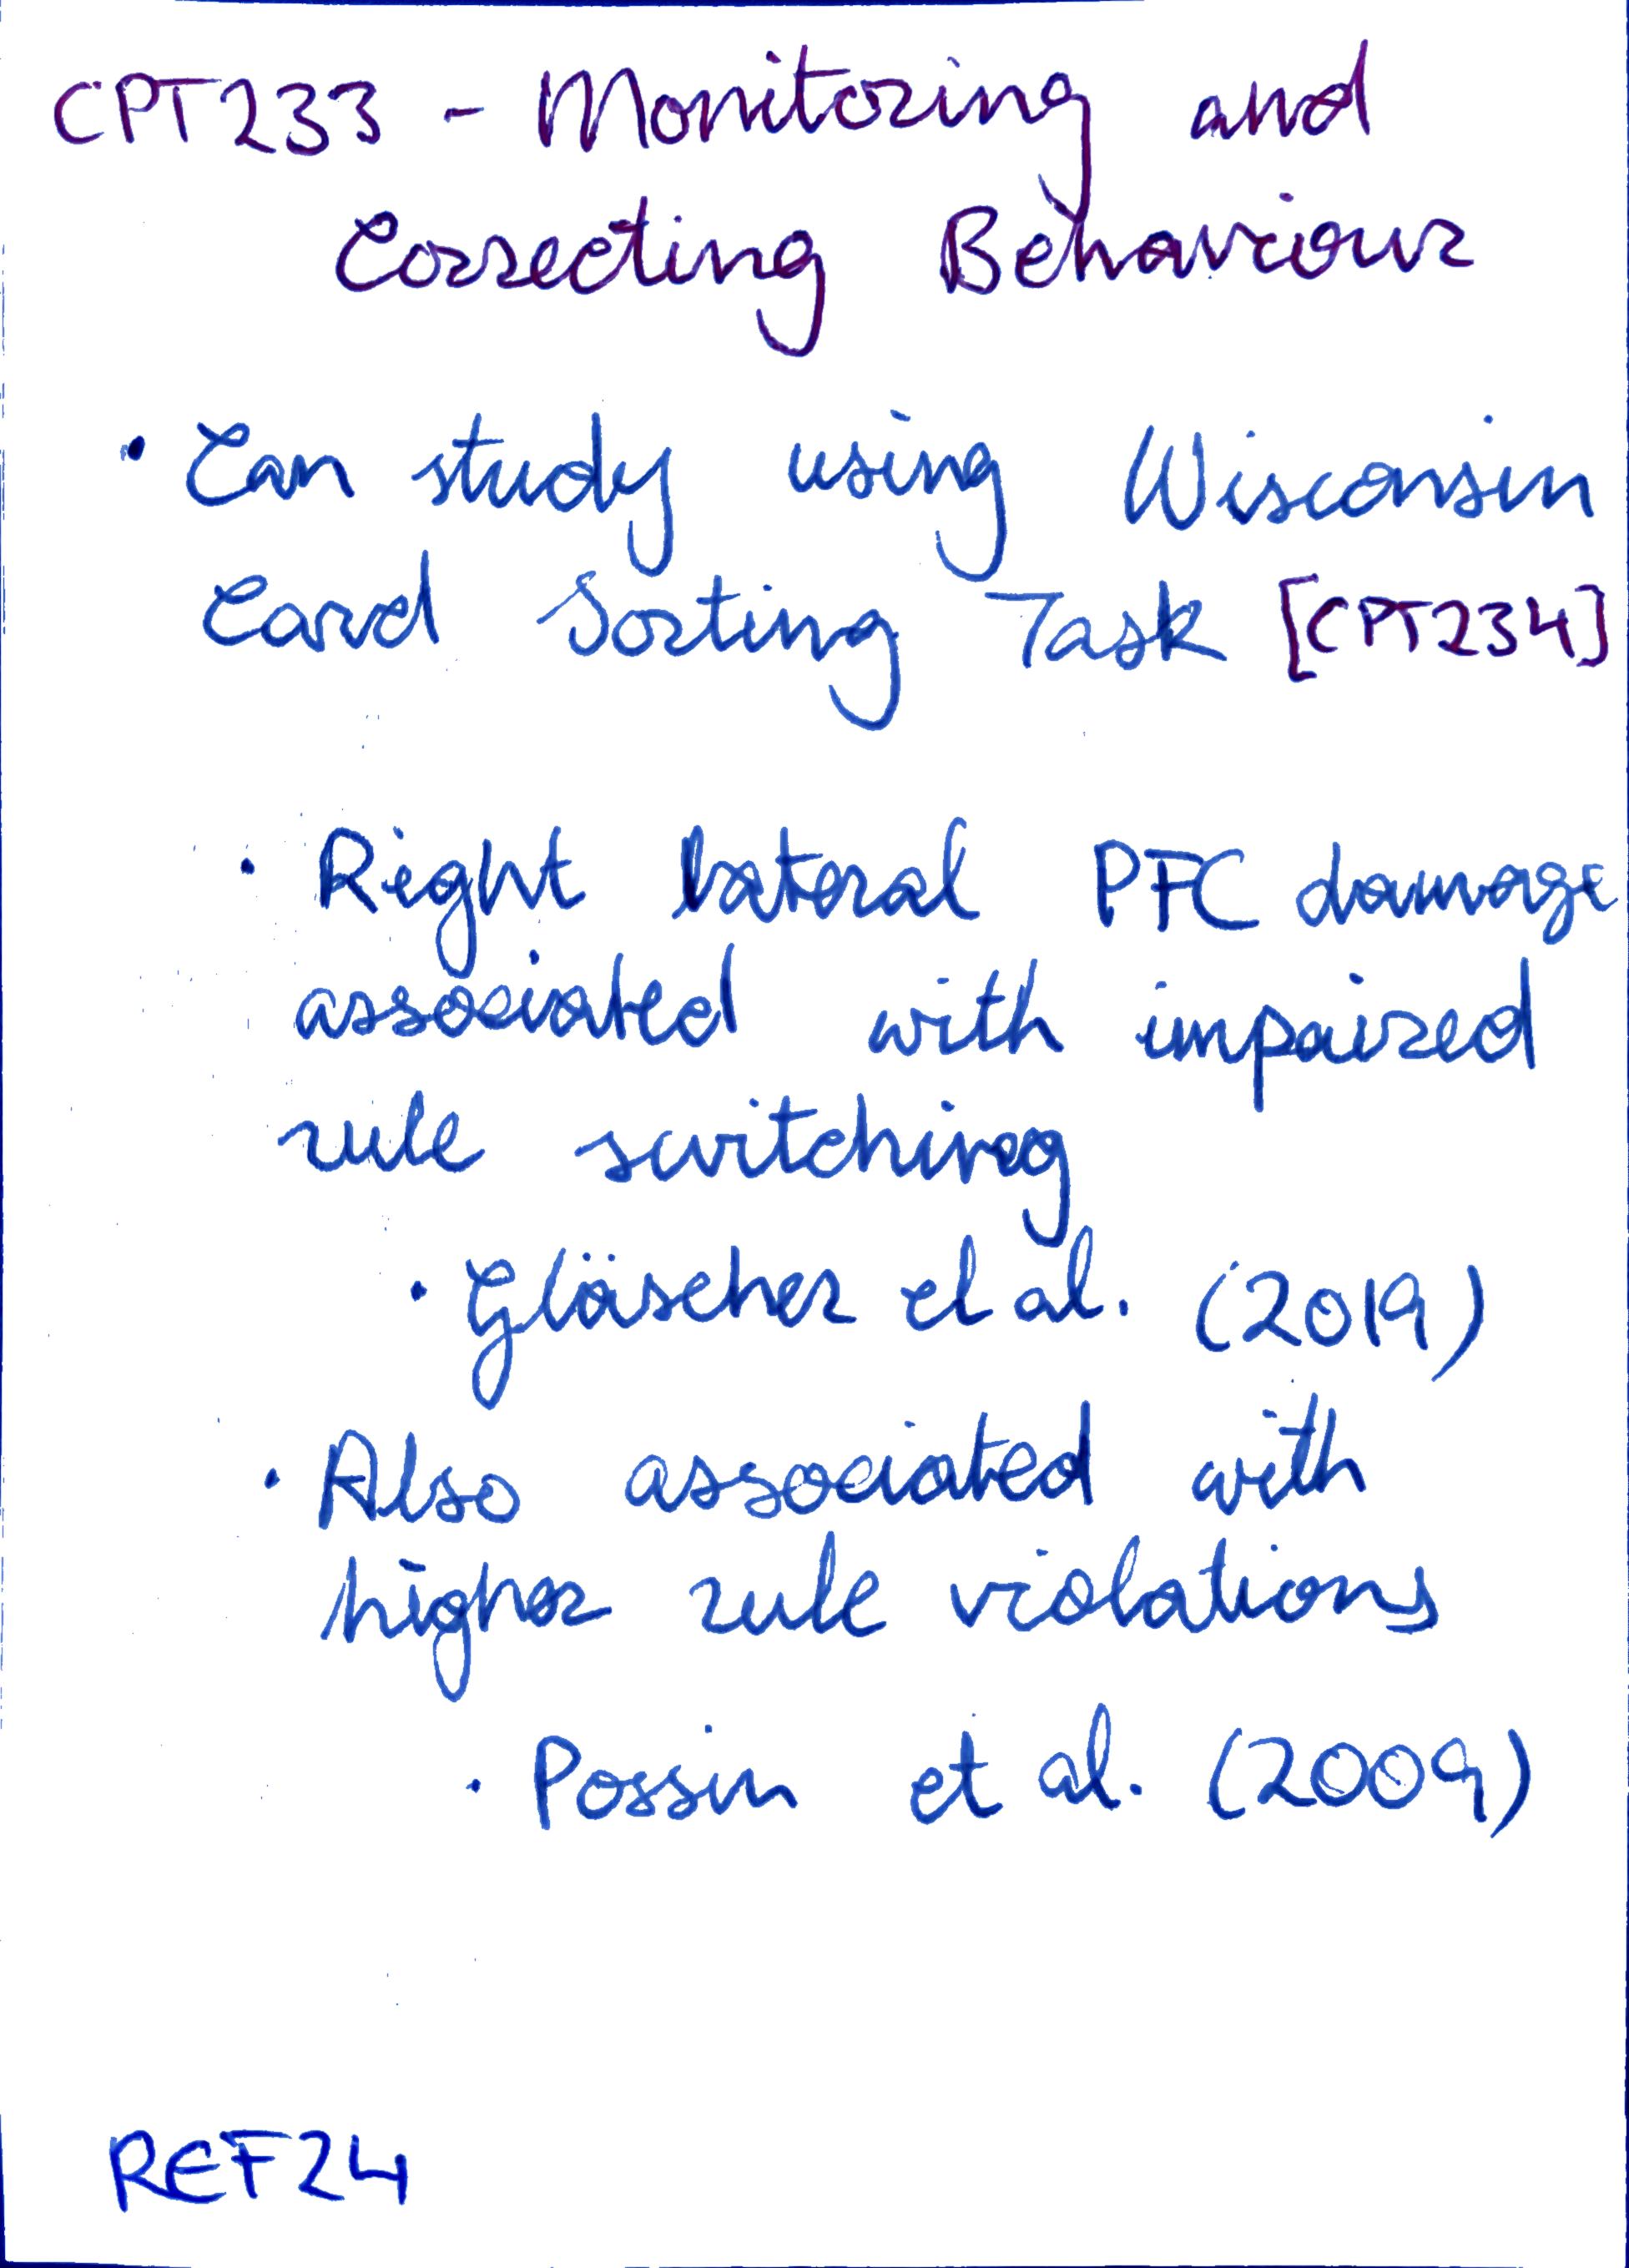 CPT233 - Monitoring and
Correcting Behaviour
• Can study using Wisconsin
Card Sorting Task [CPT234]
• Right lateral PFC damage
associated with impaired
rule switching
• Gläscher et al. (2019)
• Also associated with
higher rule violations
• Possin et al. (2009)
REF24